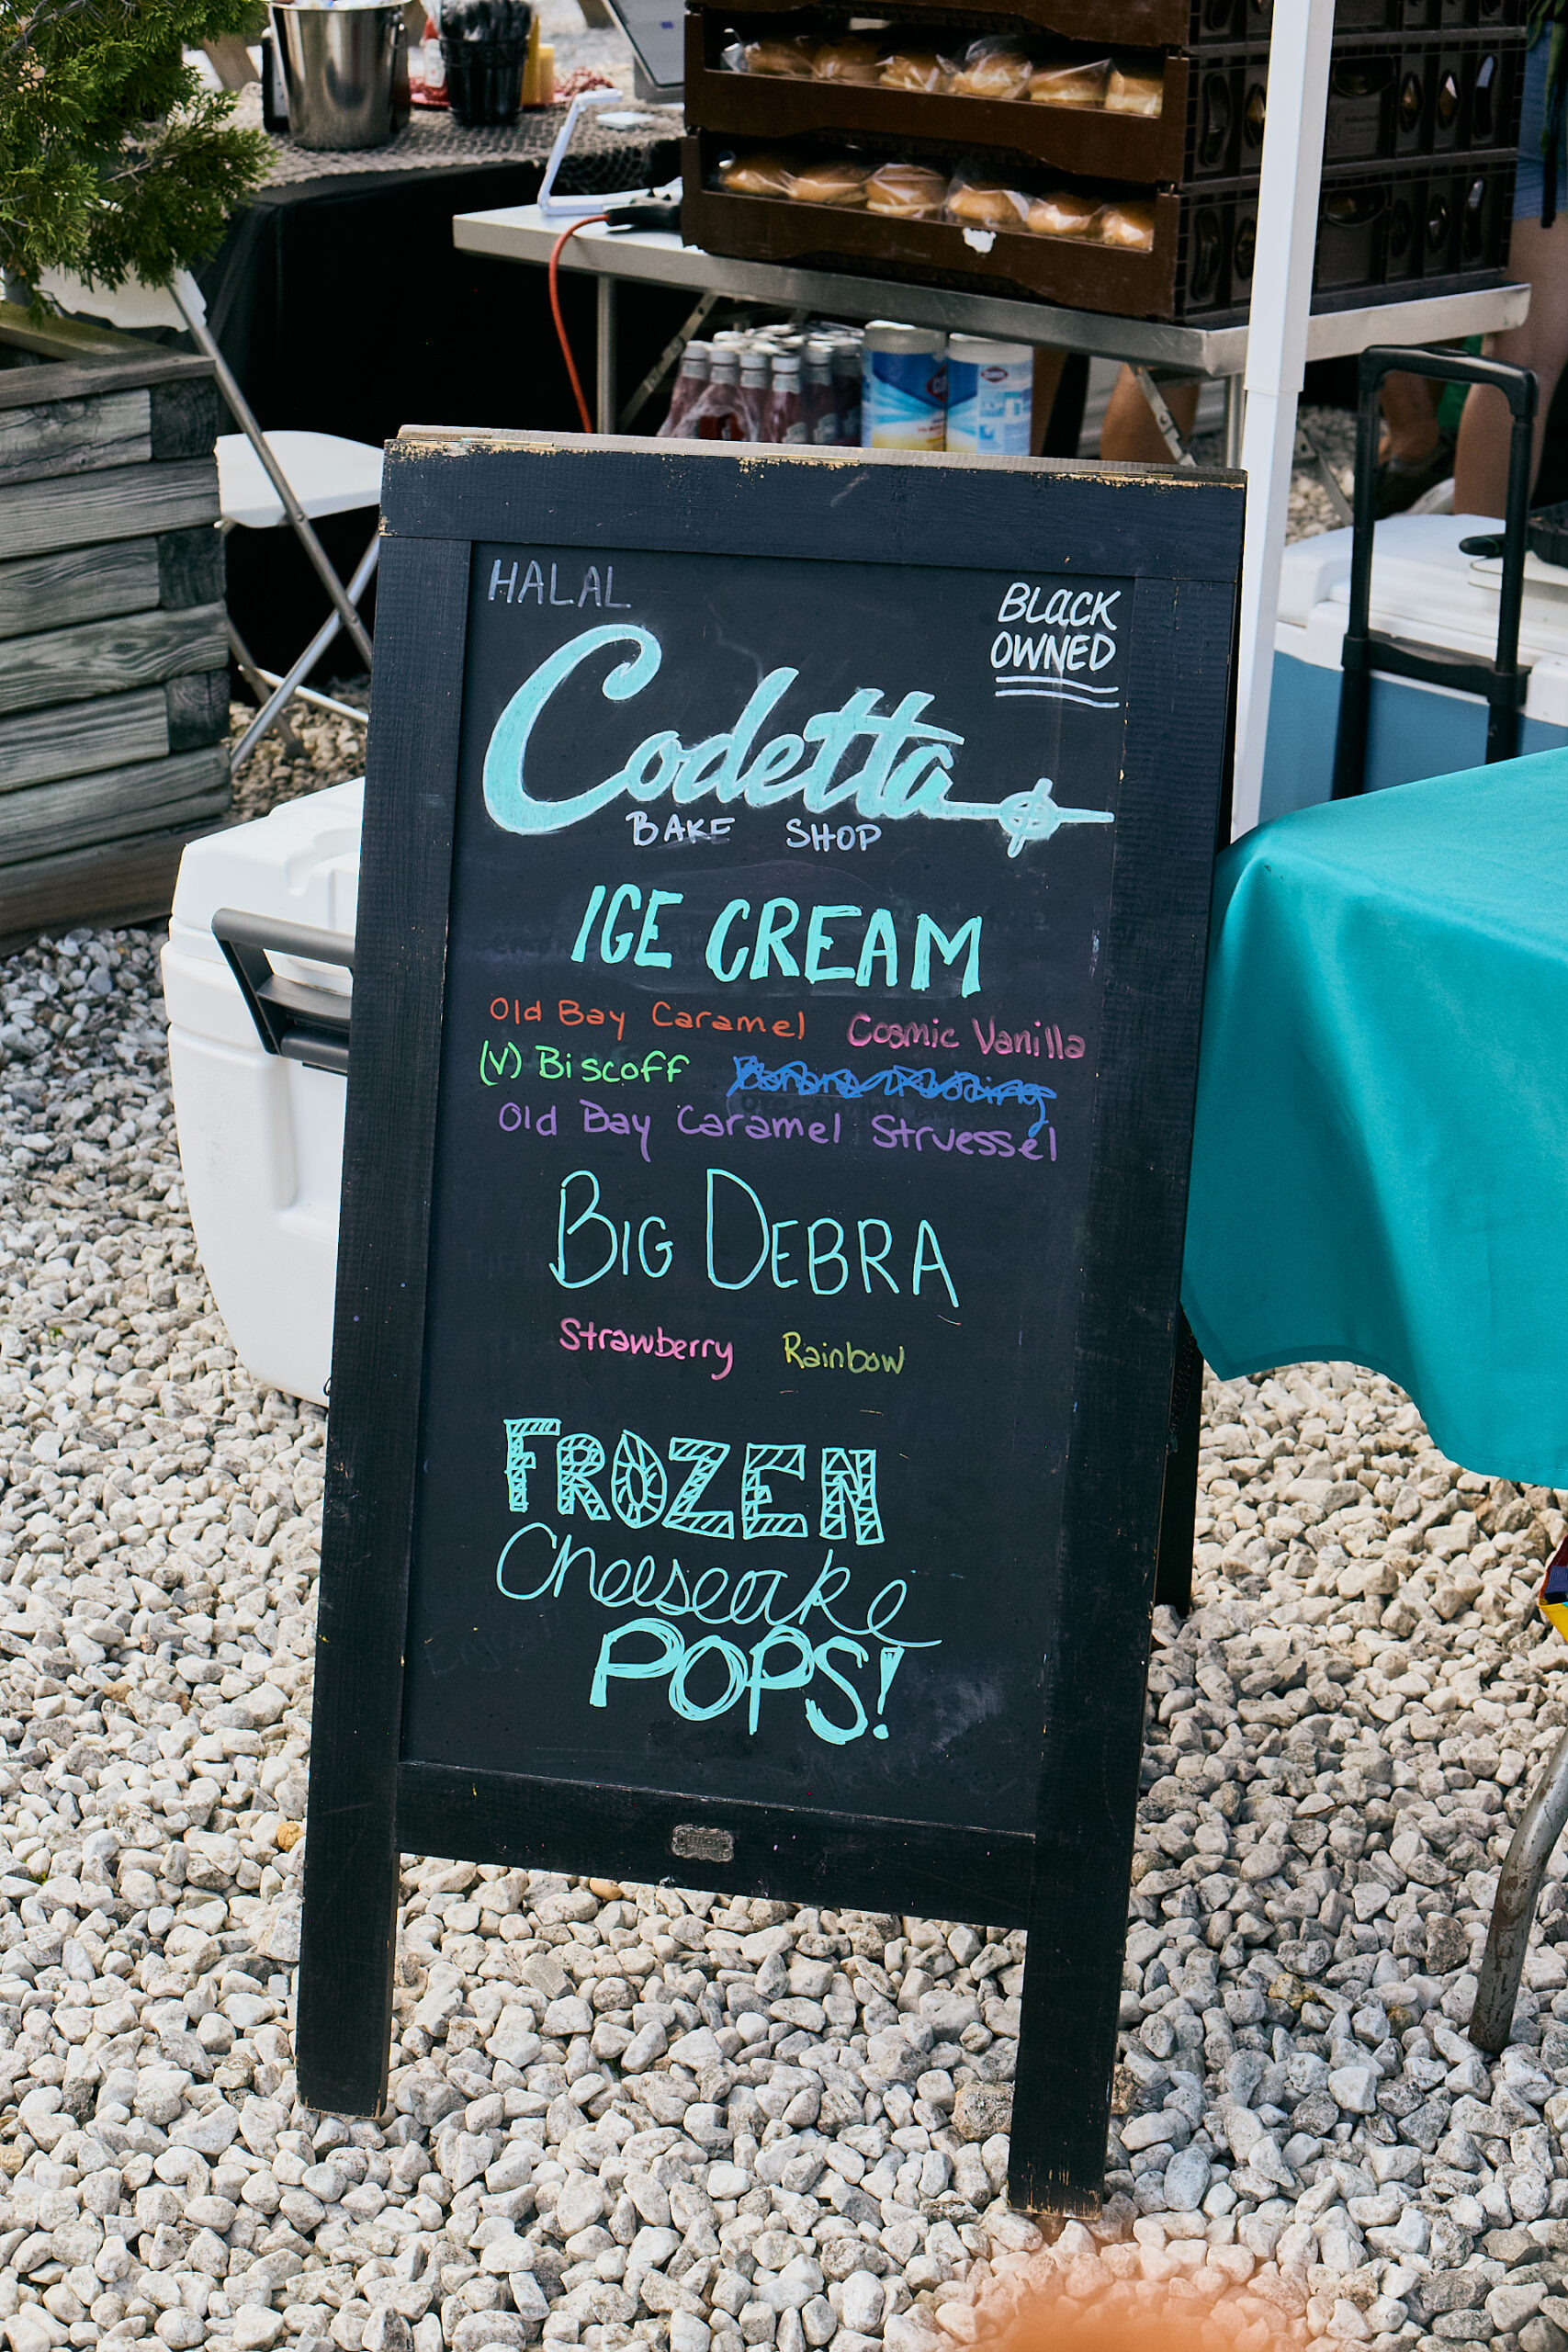 HALAL
BLACK
OWNED
Codetta
BAKE SHOP
ICE CREAM
Old Bay Caramel Cosmic Vanilla
(V) Biscoff
Old Bay Caramel Struessel
BIG DEBRA
Strawberry Rainbow
FROZEN
Cheesecake
POPS!